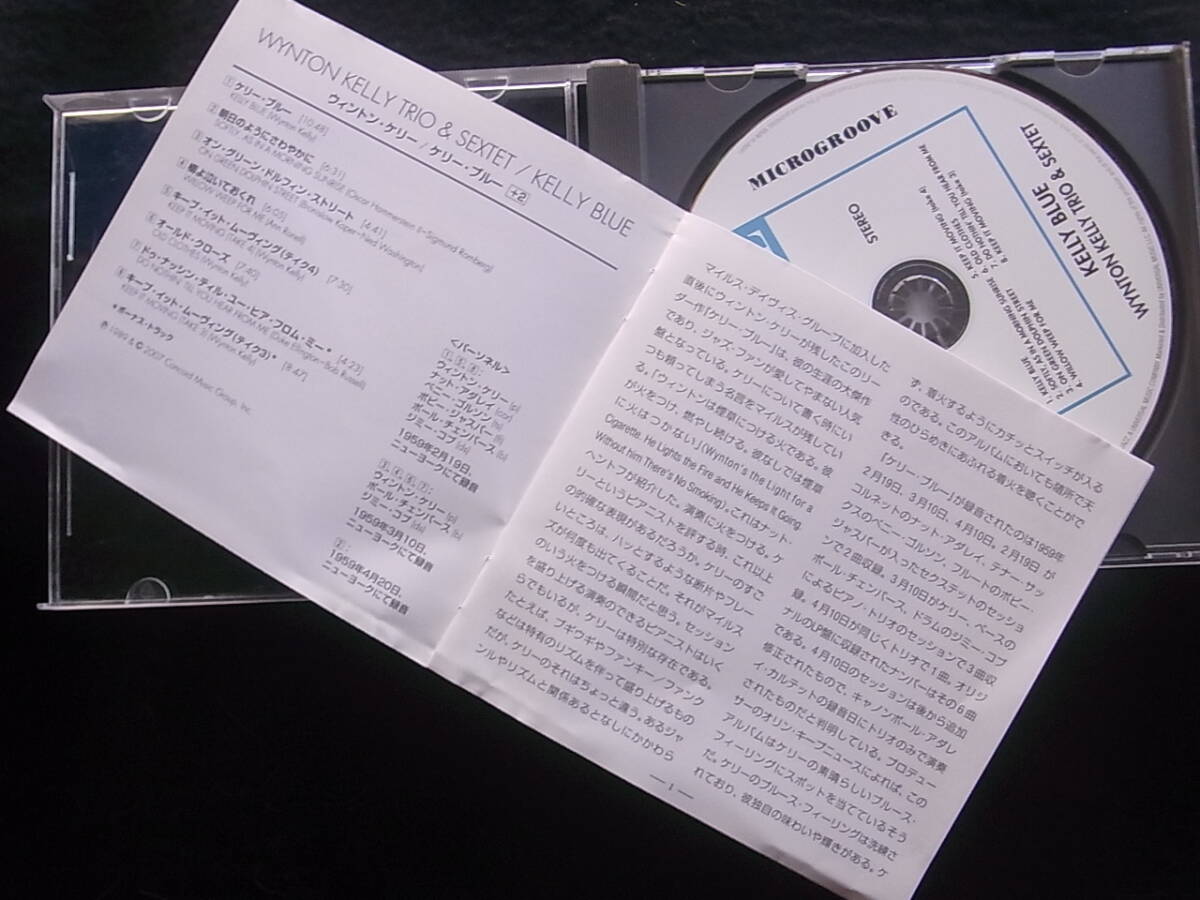 WYNTON KELLY TRIO & SEXTET / KELLY BLUE
ウィントン・ケリー / ケリー・ブルー +2
1 ケリー・ブルー [10:48]
KELLY BLUE (Wynton Kelly)
2 朝日のようにさわやかに [6:31]
SOFTLY, AS IN A MORNING SUNRISE (Oscar Hammerstein II-Sigmund Romberg)
3 オン・グリーン・ドルフィン・ストリート [4:41]
ON GREEN DOLPHIN STREET (Bronislaw Kaper-Ned Washington)
4 柳よ泣いておくれ [6:05]
WILLOW WEEP FOR ME (Ann Ronell)
5 キープ・イット・ムーヴィング(テイク4) [7:30]
KEEP IT MOVING (TAKE 4) (Wynton Kelly)
6 オールド・クローズ [7:40]
OLD CLOTHES (Wynton Kelly)
7 ドゥ・ナッシン・ティル・ユー・ヒア・フロム・ミー* [4:23]
DO NOTHIN' TILL YOU HEAR FROM ME (Duke Ellington-Bob Russell)
8 キープ・イット・ムーヴィング(テイク3)* [8:47]
KEEP IT MOVING (TAKE 3) (Wynton Kelly)
*ボーナス・トラック
℗ 1989 & © 2007 Concord Music Group, Inc.
<パーソネル>
ウィントン・ケリー (p)
ナット・アダレイ (cor)
ベニー・ゴルソン (ts)
ボビー・ジャスパー (fl)
ポール・チェンバース (b)
ジミー・コブ (ds)
1959年2月19日、
ニューヨークにて録音
ウィントン・ケリー (p)
ポール・チェンバース (b)
ジミー・コブ (ds)
1959年3月10日、
ニューヨークにて録音
1959年4月20日、
ニューヨークにて録音
マイルス・デイヴィス・グループに加入した
直後にウィントン・ケリーが残したこのリー
ダー作『ケリー・ブルー』は、彼の生涯の大傑作
であり、ジャズ・ファンが愛してやまない人気
盤となっている。ケリーについて書く時にい
つも頼ってしまう名言をマイルスが残してい
る。「ウィントンは煙草につける火である。彼
が火をつけ、燃やし続ける。彼なしでは煙草
に火はつかない」(Wynton's the Light for a
Cigarette. He Lights the Fire and He Keeps It Going.
Without him There's No Smoking)。これはナット・
ヘントフが紹介した。演奏に火をつける。ケ
リーというピアニストを評する時、これ以上
の的確な表現があるだろうか。ケリーのすご
いところは、ハッとするような断片やフレー
ズが何度も出てくることだ。それがマイルス
のいう火をつける瞬間だと思う。セッション
を盛り上げる演奏のできるピアニストはいく
らでもいるが、ケリーは特別な存在である。
たとえば、ブギウギやファンキー/ファンク
などは特有のリズムを伴って盛り上げるもの
だが、ケリーのそれはちょっと違う。あるジャ
ンルやリズムと関係あるとなしにかかわら
ず、着火するようにカチッとスイッチが入る
のである。このアルバムにおいても随所で天
性のひらめきにあふれる着火を聴くことがで
きる。
『ケリー・ブルー』が録音されたのは1959年
2月19日、3月10日、4月10日。2月19日が
コルネットのナット・アダレイ、テナー・サッ
クスのベニー・ゴルソン、フルートのボビー・
ジャスパーが入ったセクステットのセッショ
ンで2曲収録。3月10日がケリー、ベースの
ポール・チェンバース、ドラムのジミー・コブ
によるピアノ・トリオのセッションで3曲収
録。4月10日が同じくトリオで1曲。オリジ
ナルのLP盤に収録されたナンバーはその6曲
である。4月10日のセッションは後から追加
修正されたもので、キャノンボール・アダレ
イ・カルテットの録音日にトリオのみで演奏
されたものだと判明している。プロデュー
サーのオリン・キープニュースによれば、この
アルバムはケリーの素晴らしいブルース・
フィーリングにスポットを当てているそう
だ。ケリーのブルース・フィーリングは洗練さ
れており、彼独自の味わいや輝きがある。ケ
— 1 —
MICROGROOVE
STEREO
KELLY BLUE
WYNTON KELLY TRIO & SEXTET
KELLY BLUE
2. SOFTLY, AS IN A MORNING SUNRISE
3. ON GREEN DOLPHIN STREET
4. WILLOW WEEP FOR ME
5. KEEP IT MOVING (take 4)
6. OLD CLOTHES
7. DO NOTHIN' TILL YOU HEAR FROM ME
8. KEEP IT MOVING (take 3)